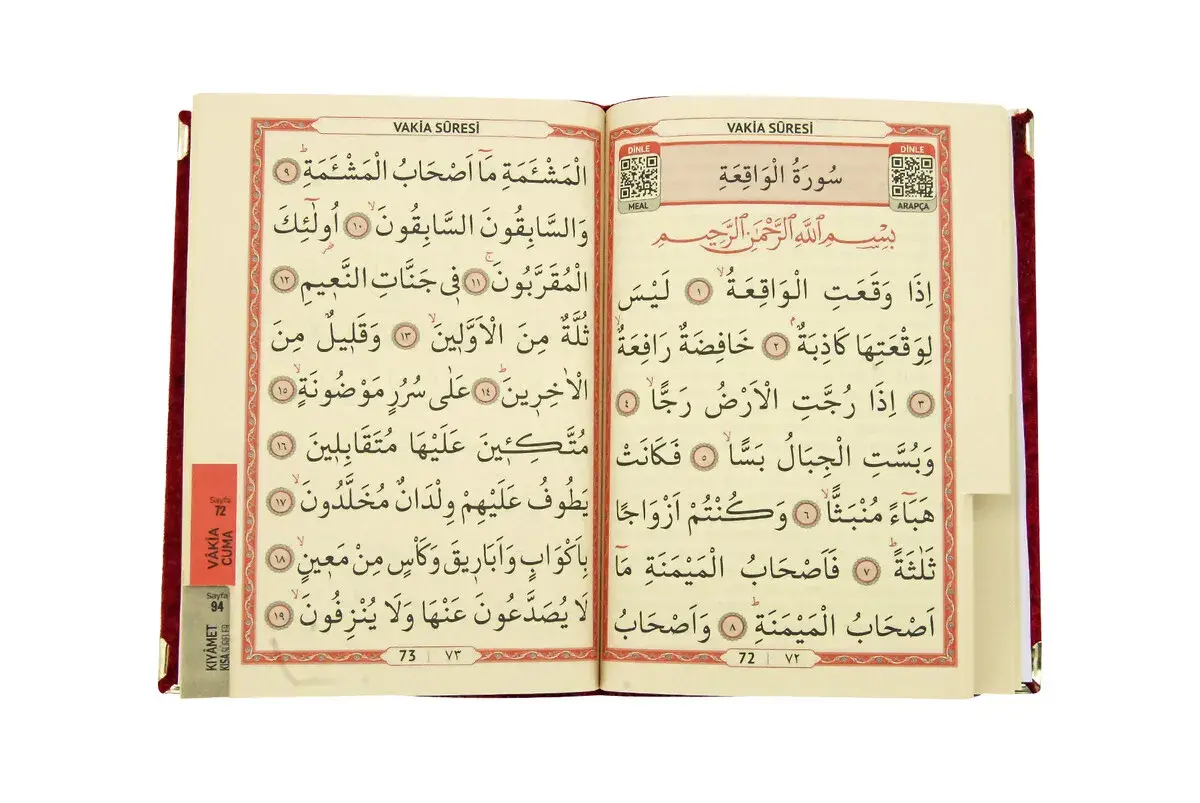 VAKİA SÛRESİ
DİNLE
MEAL
سُورَةُ الْوَاقِعَةِ
DİNLE
ARAPÇA
بِسْمِ اللّٰهِ الرَّحْمٰنِ الرَّحِيمِ
اِذَا وَقَعَتِ الْوَاقِعَةُۙ ﴿١﴾ لَيْسَ
لِوَقْعَتِهَا كَاذِبَةٌۢ ﴿٢﴾ خَافِضَةٌ رَافِعَةٌۙ
﴿٣﴾ اِذَا رُجَّتِ الْاَرْضُ رَجًّاۙ ﴿٤﴾
وَبُسَّتِ الْجِبَالُ بَسًّاۙ ﴿٥﴾ فَكَانَتْ
هَبَٓاءً مُنْبَثًّاۙ ﴿٦﴾ وَكُنْتُمْ اَزْوَاجًا
ثَلٰثَةًؕ ﴿٧﴾ فَاَصْحَابُ الْمَيْمَنَةِ مَٓا
اَصْحَابُ الْمَيْمَنَةِؕ ﴿٨﴾ وَاَصْحَابُ
72 | ٧٢
VAKİA SÛRESİ
الْمَشْـَٔمَةِ مَٓا اَصْحَابُ الْمَشْـَٔمَةِؕ ﴿٩﴾
وَالسَّابِقُونَ السَّابِقُونَۙ ﴿١٠﴾ اُو۬لٰٓئِكَ
الْمُقَرَّبُونَۚ ﴿١١﴾ فِي جَنَّاتِ النَّعِيمِ ﴿١٢﴾
ثُلَّةٌ مِنَ الْاَوَّلِينَۙ ﴿١٣﴾ وَقَلِيلٌ مِنَ
الْاٰخِرِينَؕ ﴿١٤﴾ عَلٰى سُرُرٍ مَوْضُونَةٍۙ ﴿١٥﴾
مُتَّكِـِٔينَ عَلَيْهَا مُتَقَابِلِينَ ﴿١٦﴾
يَطُوفُ عَلَيْهِمْ وِلْدَانٌ مُخَلَّدُونَۙ ﴿١٧﴾
بِاَكْوَابٍ وَاَبَارِيقَ وَكَأْسٍ مِنْ مَعِينٍۙ ﴿١٨﴾
لَا يُصَدَّعُونَ عَنْهَا وَلَا يُنْزِفُونَۙ ﴿١٩﴾
73 | ٧٣
Sayfa
72
VÂKİA
CUMA
Sayfa
94
KIYÂMET
KISA SÛRELER